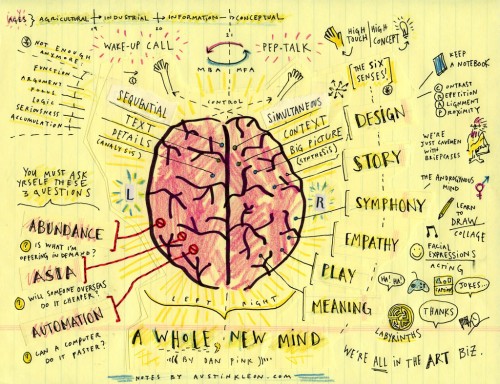 AGES} AGRICULTURAL → INDUSTRIAL → INFORMATION → CONCEPTUAL
18 19 20 21
WAKE-UP CALL
PEP-TALK
MBA MFA
HIGH TOUCH
HIGH CONCEPT
NOT ENOUGH
ANYMORE!
FUNCTION
ARGUMENT
FOCUS
LOGIC
SERIOUSNESS
ACCUMULATION
CONTROL
SEQUENTIAL
TEXT
DETAILS
(ANALYSIS)
SIMULTANEOUS
CONTEXT
BIG PICTURE
(SYNTHESIS)
L
R
LEFT RIGHT
YOU MUST ASK
YRSELF THESE
3 QUESTIONS
ABUNDANCE
? IS WHAT I'M
OFFERING IN DEMAND?
ASIA
? WILL SOMEONE OVERSEAS
DO IT CHEAPER?
AUTOMATION
? CAN A COMPUTER
DO IT FASTER?
THE SIX
SENSES!
DESIGN
STORY
SYMPHONY
EMPATHY
PLAY
MEANING
KEEP
A NOTEBOOK
CONTRAST
REPETITION
ALIGNMENT
PROXIMITY
WE'RE
JUST CAVEMEN
WITH
BRIEFCASES
THE ANDROGYNOUS
MIND
LEARN
TO
DRAW
COLLAGE
FACIAL
EXPRESSIONS
ACTING
HA! HA!
JOKES...
LABYRINTHS
THANKS
WE'RE ALL IN THE ART BIZ.
A WHOLE, NEW MIND
BY DAN PINK
NOTES BY AUSTINKLEON.COM